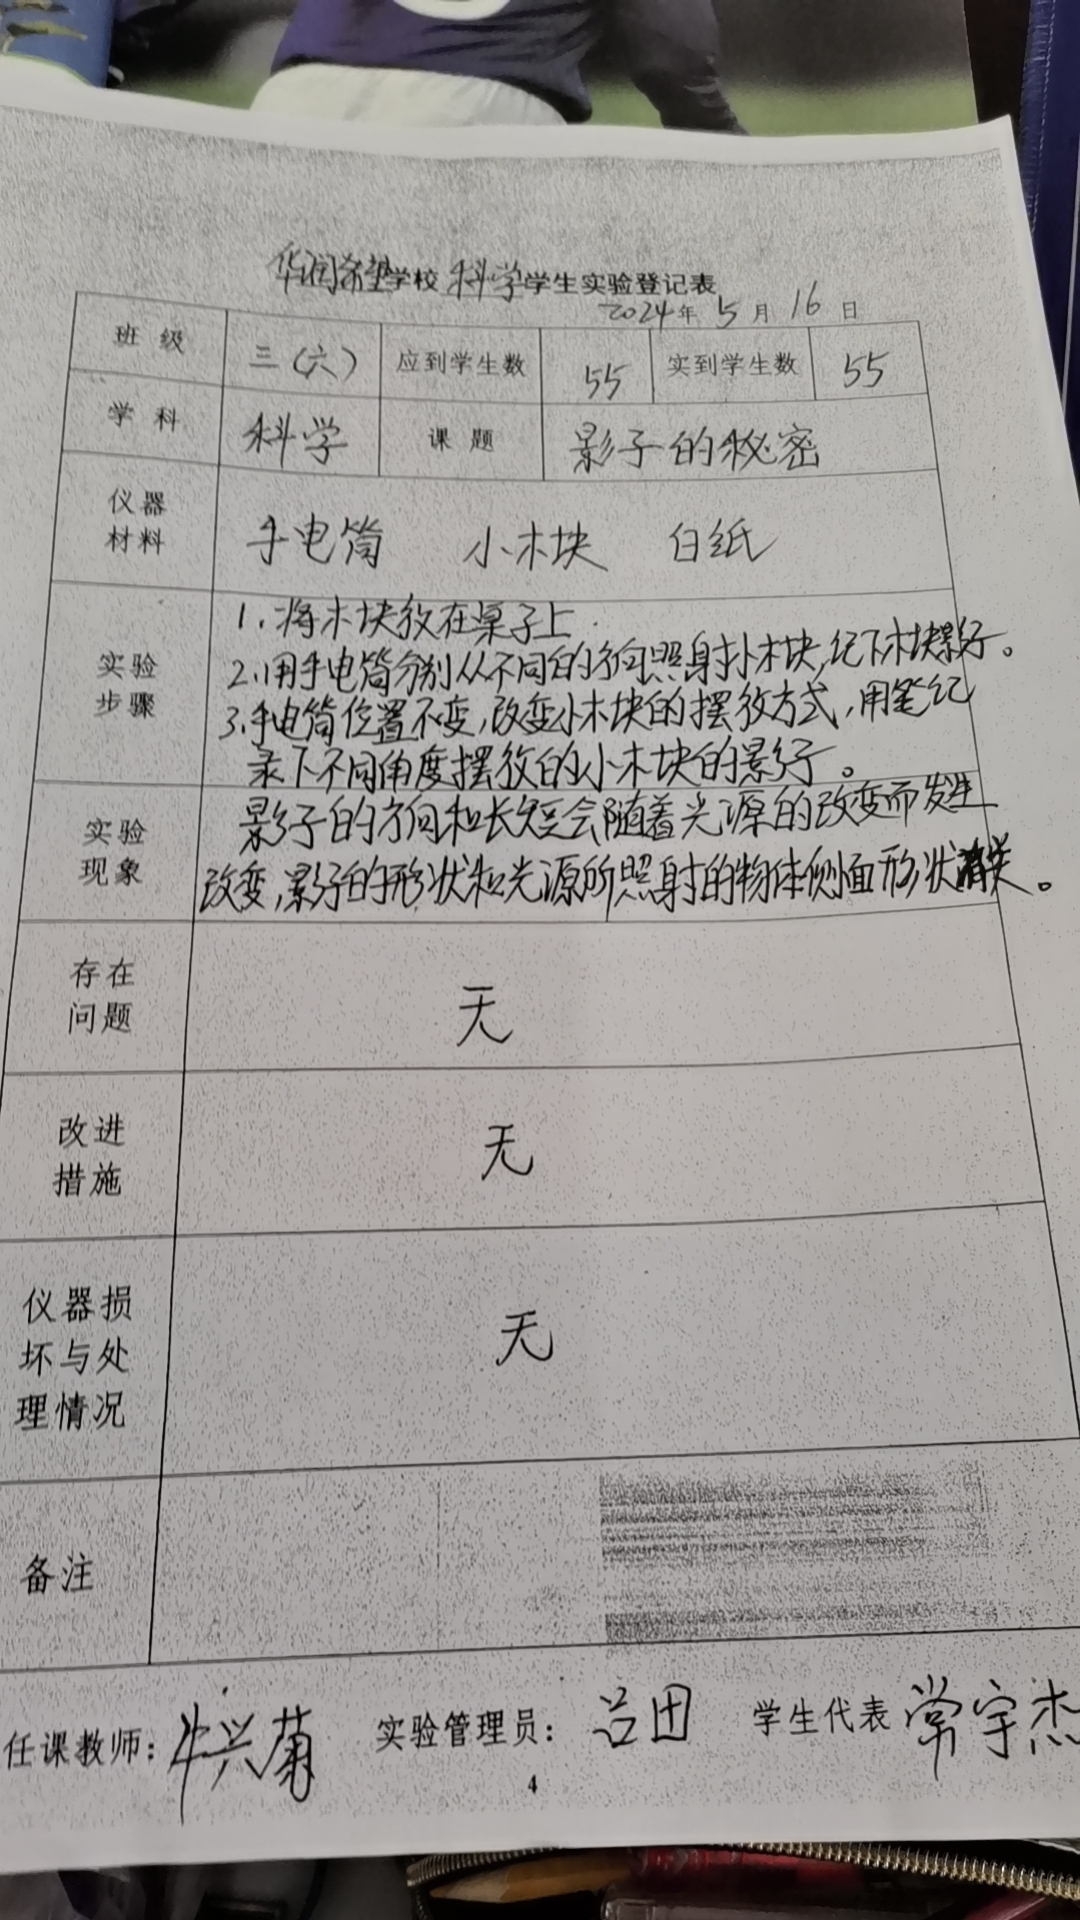 华润希望学校科学学生实验登记表
2024年5月16日
班级 三(六) 应到学生数 55 实到学生数 55
学科 科学 课题 影子的秘密
仪器
材料
手电筒 小木块 白纸
实验
步骤
1.将木块放在桌子上.
2.用手电筒分别从不同的方向照射小木块,记下木块影子。
3.手电筒位置不变,改变小木块的摆放方式,用笔记
录下不同角度摆放的小木块的影子。
实验
现象
影子的方向和长短会随着光源的改变而发生
改变,影子的形状和光源所照射的物体侧面形状有关。
存在
问题
无
改进
措施
无
仪器损
坏与处
理情况
无
备注
任课教师:牛兴菊 实验管理员:吕团 学生代表 常宇杰
4